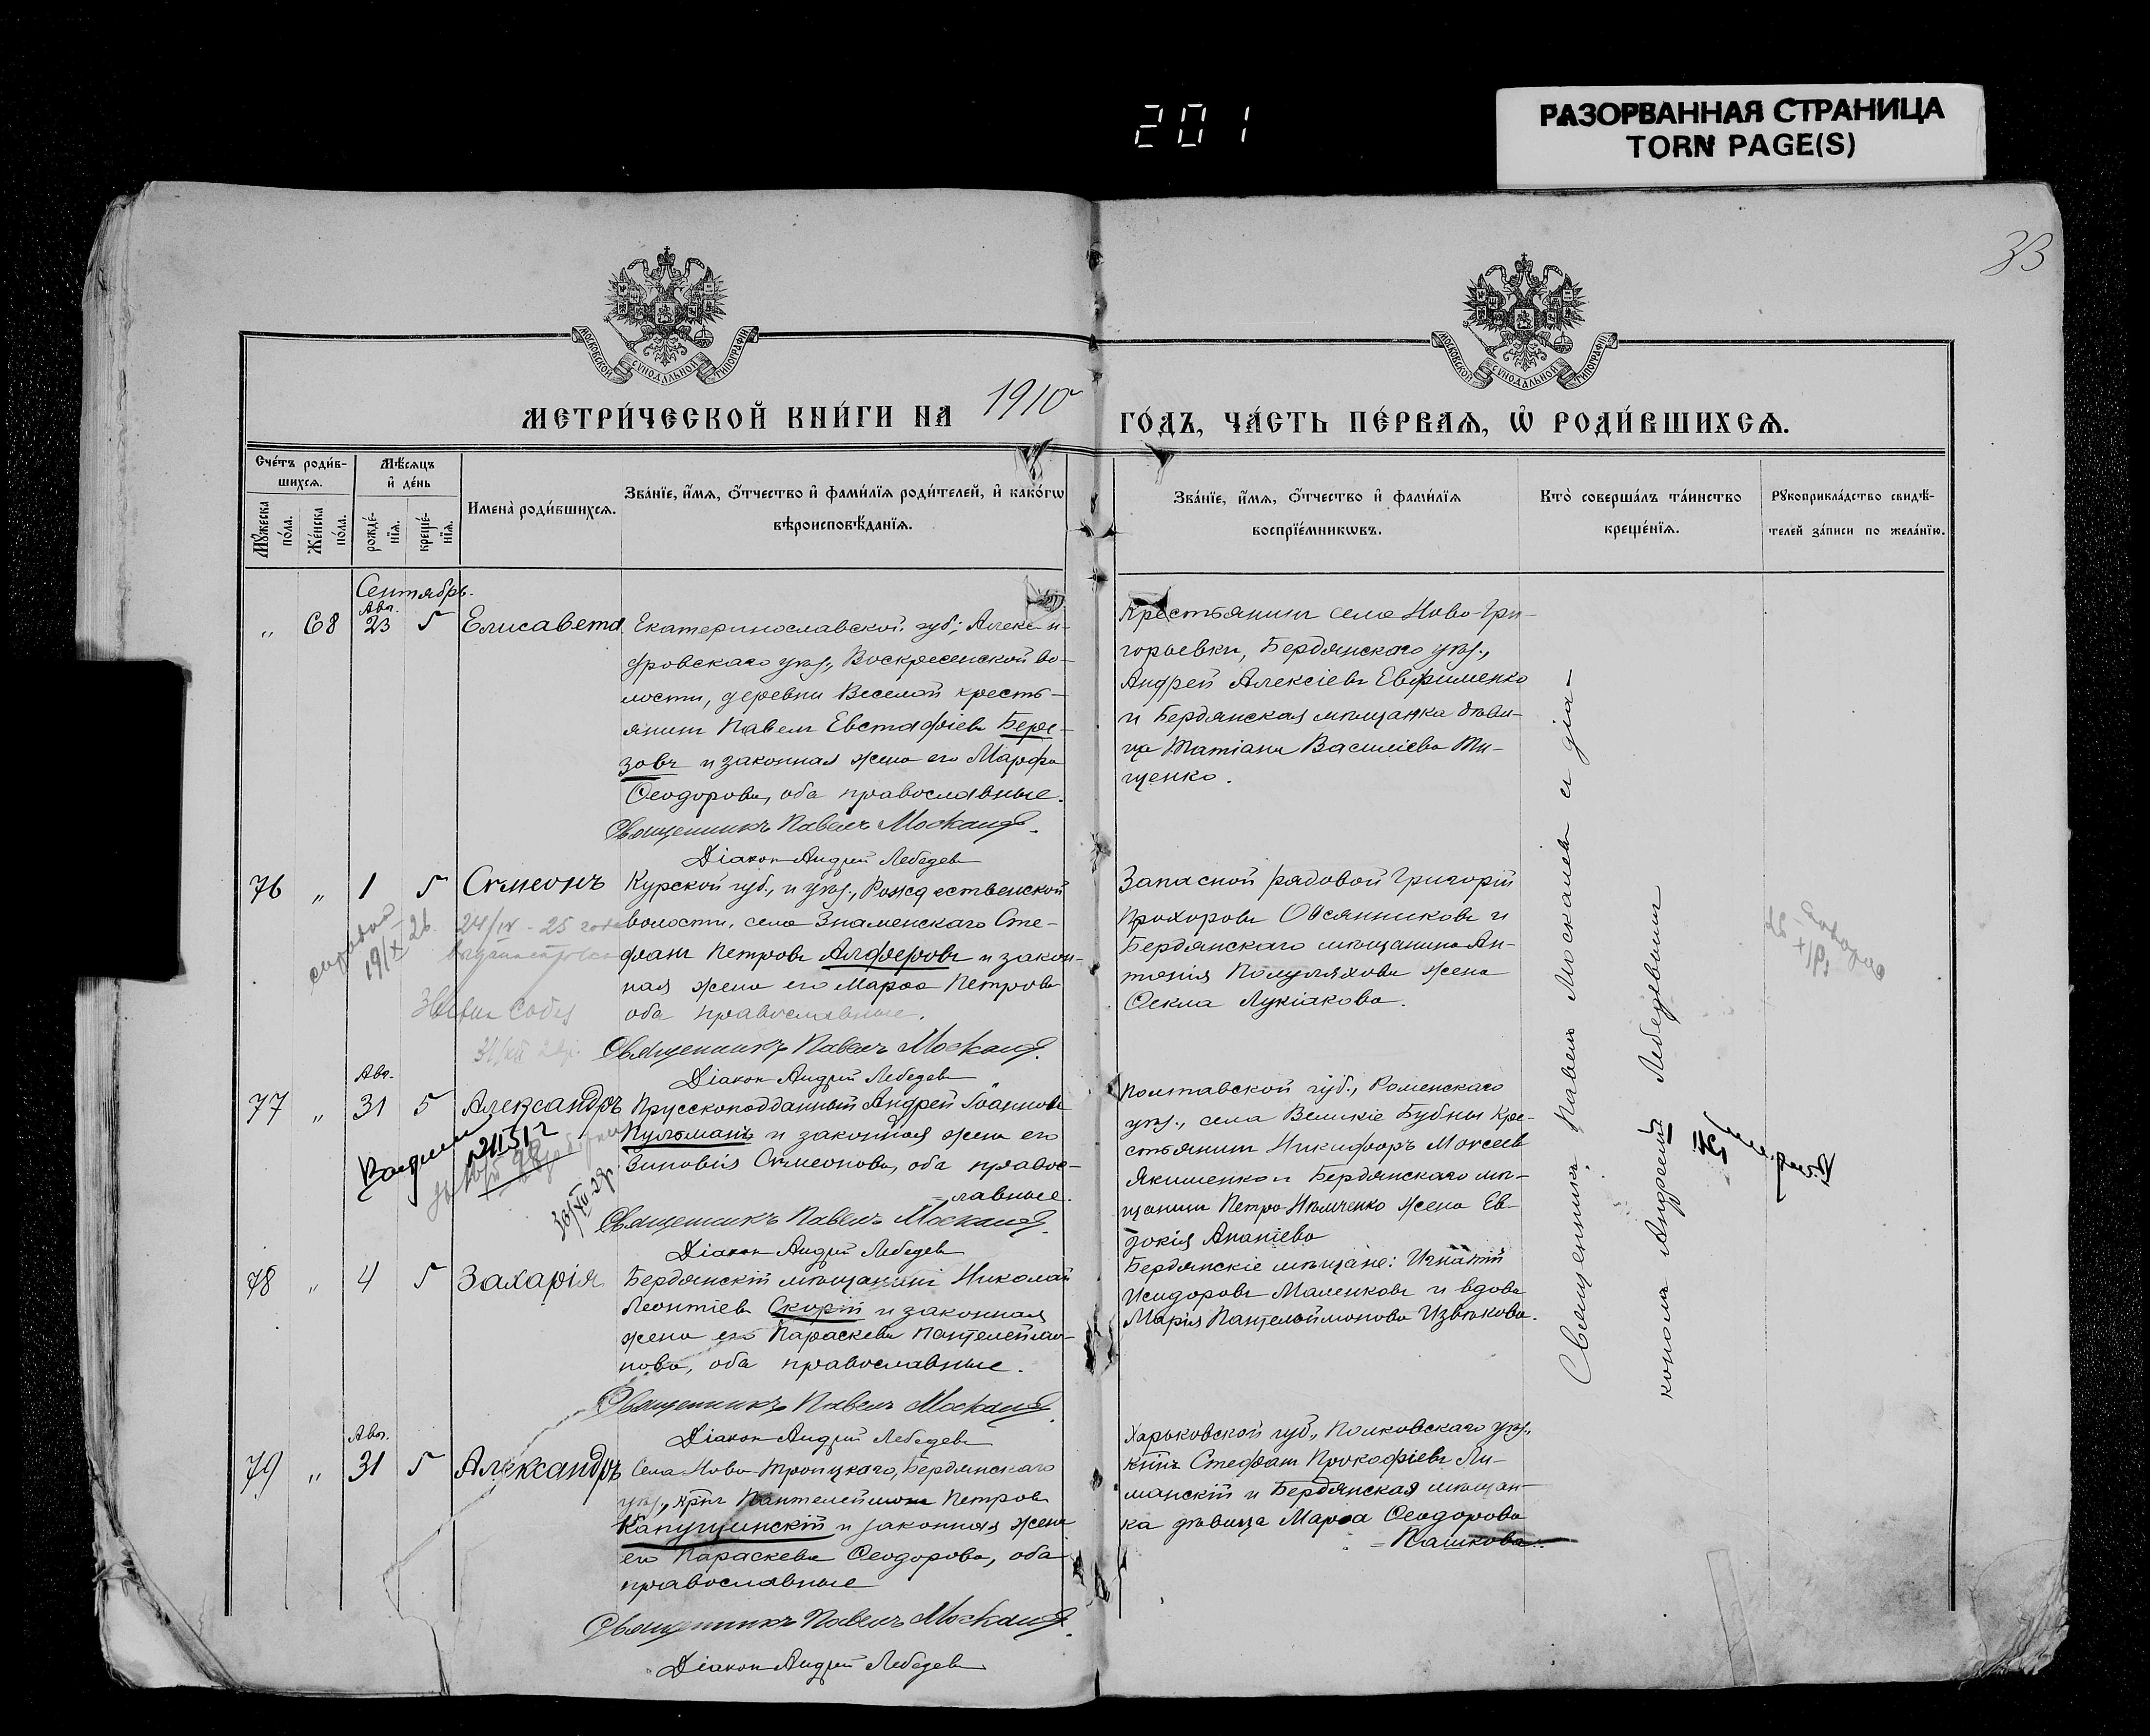 201
РАЗОРВАННАЯ СТРАНИЦА
TORN PAGE(S)
33
МОСКОВСКОЙ СѴНОДАЛЬНОЙ ТИПОГРАФІИ
МОСКОВСКОЙ СѴНОДАЛЬНОЙ ТИПОГРАФІИ
МЕТРИ́ЧЕСКОЙ КНИ́ГИ НА 1910 ГО́ДЪ, ЧА́СТЬ ПЕ́РВАѦ, Ѡ РОДИ́ВШИХСѦ.
Сче́тъ роди́в-
шихсѧ.
Мѣ́сѧцъ
и҆ де́нь
Мꙋ́жеска
по́ла.
Же́нска
по́ла.
рожде́-
нїѧ.
креще́-
нїѧ.
Имена̀ роди́вшихсѧ.
Зва́нїе, и҆́мѧ, ѻ҆́тчество и҆ фами́лїѧ роди́телей, и҆ како́гѡ
вѣроисповѣ́данїѧ.
Зва́нїе, и҆́мѧ, ѻ҆́тчество и҆ фами́лїѧ
воспрїе́мникѡвъ.
Кто̀ соверша́лъ та́инство
креще́нїѧ.
Рꙋкоприкла́дство свидѣ́-
телей за́писи по жела́нїю.
Сентябрь.
Авг.
„ 68 23 5 Елисавета
Екатеринославской губ., Алекса н-
дровскаго уѣз., Воскресенской во-
лости, деревни Веселой кресть-
янинъ Павелъ Евстафіевъ Бере-
зовъ и законная жена его Марфа
Ѳеодорова, оба православные.
Священникъ Павелъ Москалевъ.
Діаконъ Андрей Лебедевъ
Крестьянинъ села Ново-Гри-
горьевки, Бердянскаго уѣз.,
Андрей Алексіевъ Евфименко
и Бердянская мѣщанка дѣви-
ца Татіана Василіева Ти-
щенко.
76 „ 1 5 Симеонъ
Курской губ., и уѣз., Рождественской
волости, села Знаменскаго Сте-
фанъ Петровъ Алферовъ и закон-
ная жена его Марѳа Петрова
оба православные.
Священникъ Павелъ Москалевъ.
Діаконъ Андрей Лебедевъ
19/X 26.
24/IV - 25 года
Запасной рядовой Григорій
Прохоровъ Овсянниковъ и
Бердянскаго мѣщанина Ан-
тонія Полуляхова жена
Ѳекла Лукіакова.
Авг.
77 „ 31 5 Александръ
Прусскоподданный Андрей Іоанновъ
Пульманъ и законная жена его
Зиновія Симеонова, оба правос-
лавные.
Священникъ Павелъ Москалевъ.
Діаконъ Андрей Лебедевъ
Полтавской губ., Роменскаго
уѣз., села Великіе Бубны кре-
стьянинъ Никифоръ Моѵсеев
Якименко и Бердянскаго мѣ-
щанина Петра Ильченко жена Ев-
докія Ананіева
78 „ 4 5 Захарія
Бердянскій мѣщанинъ Николай
Леонтіевъ Скорій и законная
жена его Параскева Пантелеймо-
нова, оба православные.
Священникъ Павелъ Москалевъ.
Діаконъ Андрей Лебедевъ
Бердянскіе мѣщане: Игнатій
Исидоровъ Маленковъ и вдова
Марія Пантелеймонова Извѣкова.
Авг.
79 „ 31 5 Александръ
Села Ново-Троицкаго, Бердянскаго
уѣз., крнъ Пантелеймонъ Петровъ
Капущинскій и законная жена
его Параскева Ѳеодорова, оба
православные
Священникъ Павелъ Москалевъ.
Діаконъ Андрей Лебедевъ
Харьковской губ., Волковскаго уѣз.,
книнъ Стефанъ Прокофіевъ Ли-
манскій и Бердянская мѣщан-
ка дѣвица Марѳа Ѳеодорова
Пашкова.
Священникъ Павелъ Москалевъ съ діа-
кономъ Андреемъ Лебедевымъ